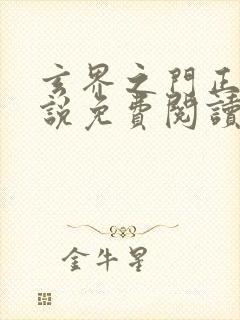 玄界之門正
說免費閱讀
金牛星